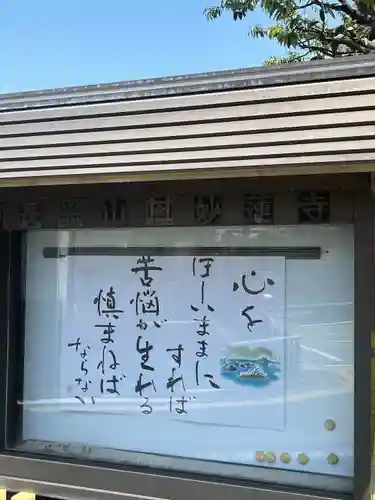 長照山日妙蓮寺
心を
ほしいままに
すれば
苦悩が生れる
慎まねば
ならない